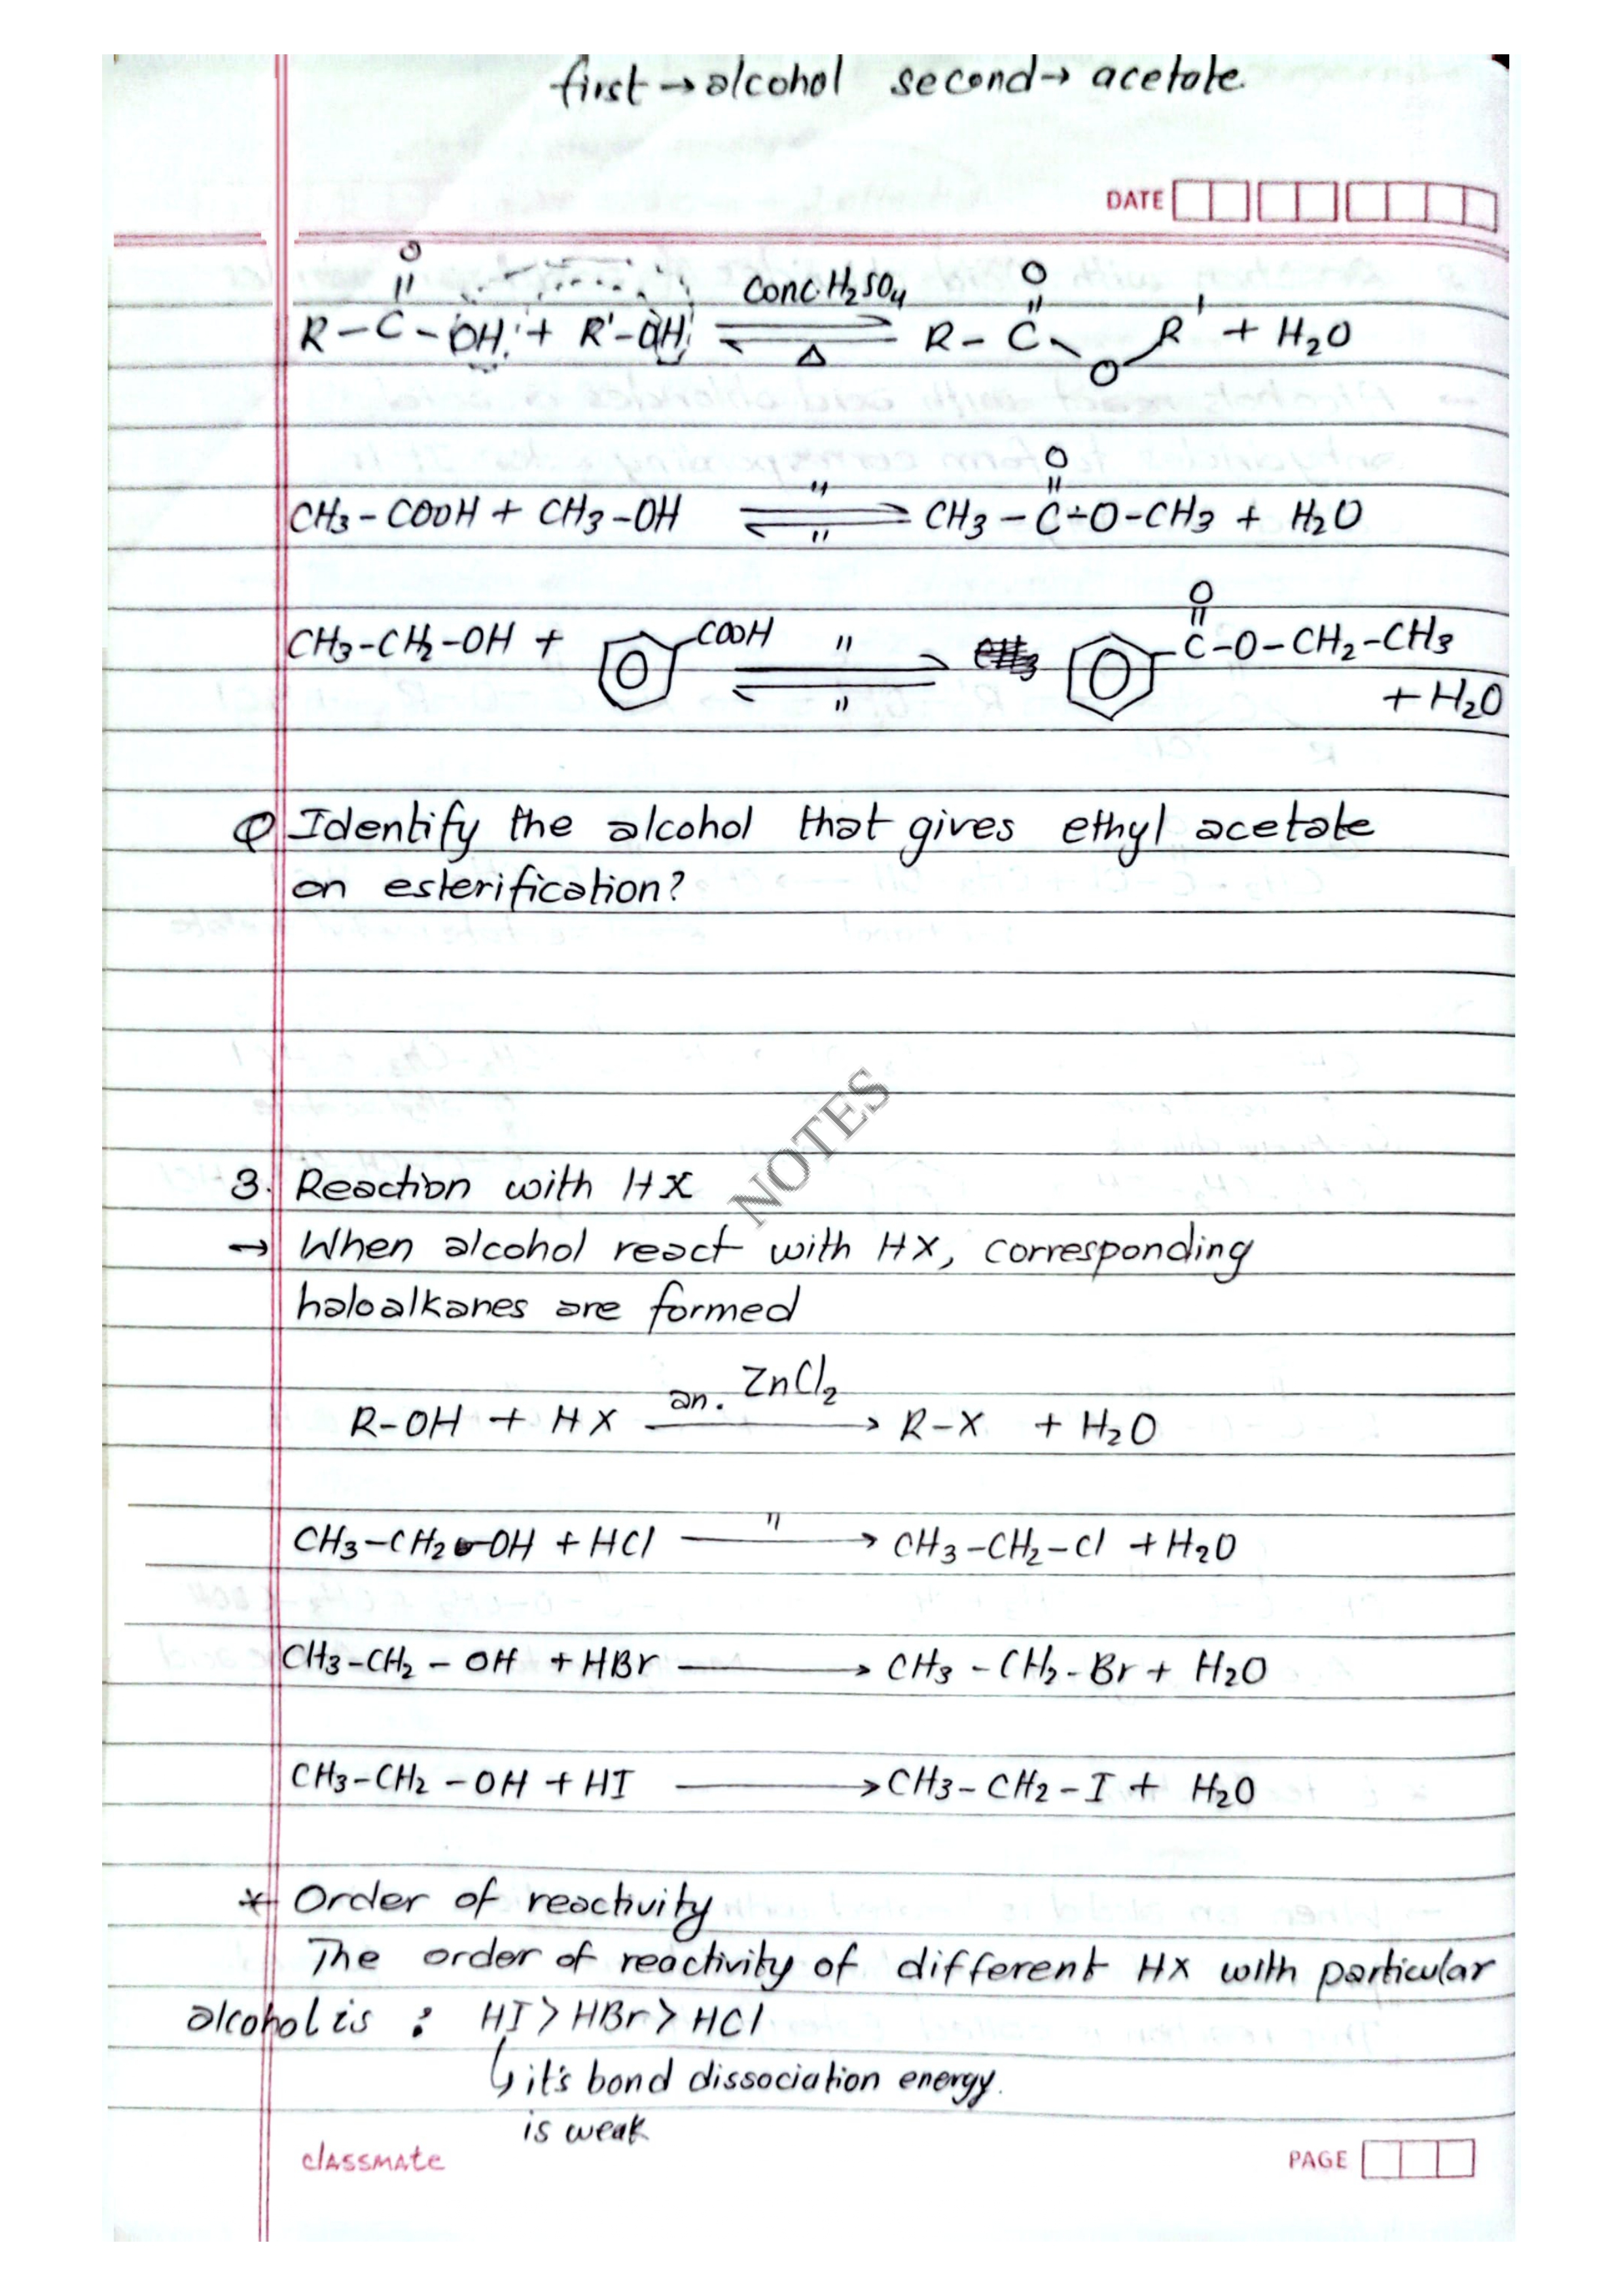 first → alcohol second → acetate.
DATE
O
R – C – OH + R' – OH ⇌ Conc. H₂SO₄ Δ R – C(=O) – O – R' + H₂O
O
CH₃ – COOH + CH₃ – OH ⇌ " " CH₃ – C – O – CH₃ + H₂O
O
CH₃–CH₂–OH + COOH ⇌ " " C–O–CH₂–CH₃
+ H₂O
Q Identify the alcohol that gives ethyl acetate
on esterification?
NOTES
3. Reaction with HX
→ When alcohol react with HX, corresponding
haloalkanes are formed
an. ZnCl₂
R–OH + HX → R–X + H₂O
CH₃–CH₂–OH + HCl " → CH₃–CH₂–Cl + H₂O
CH₃–CH₂–OH + HBr → CH₃–CH₂–Br + H₂O
CH₃–CH₂–OH + HI → CH₃–CH₂–I + H₂O
* Order of reactivity
The order of reactivity of different HX with particular
alcohol is : HI > HBr > HCl
↳ it's bond dissociation energy.
is weak
classmate
PAGE